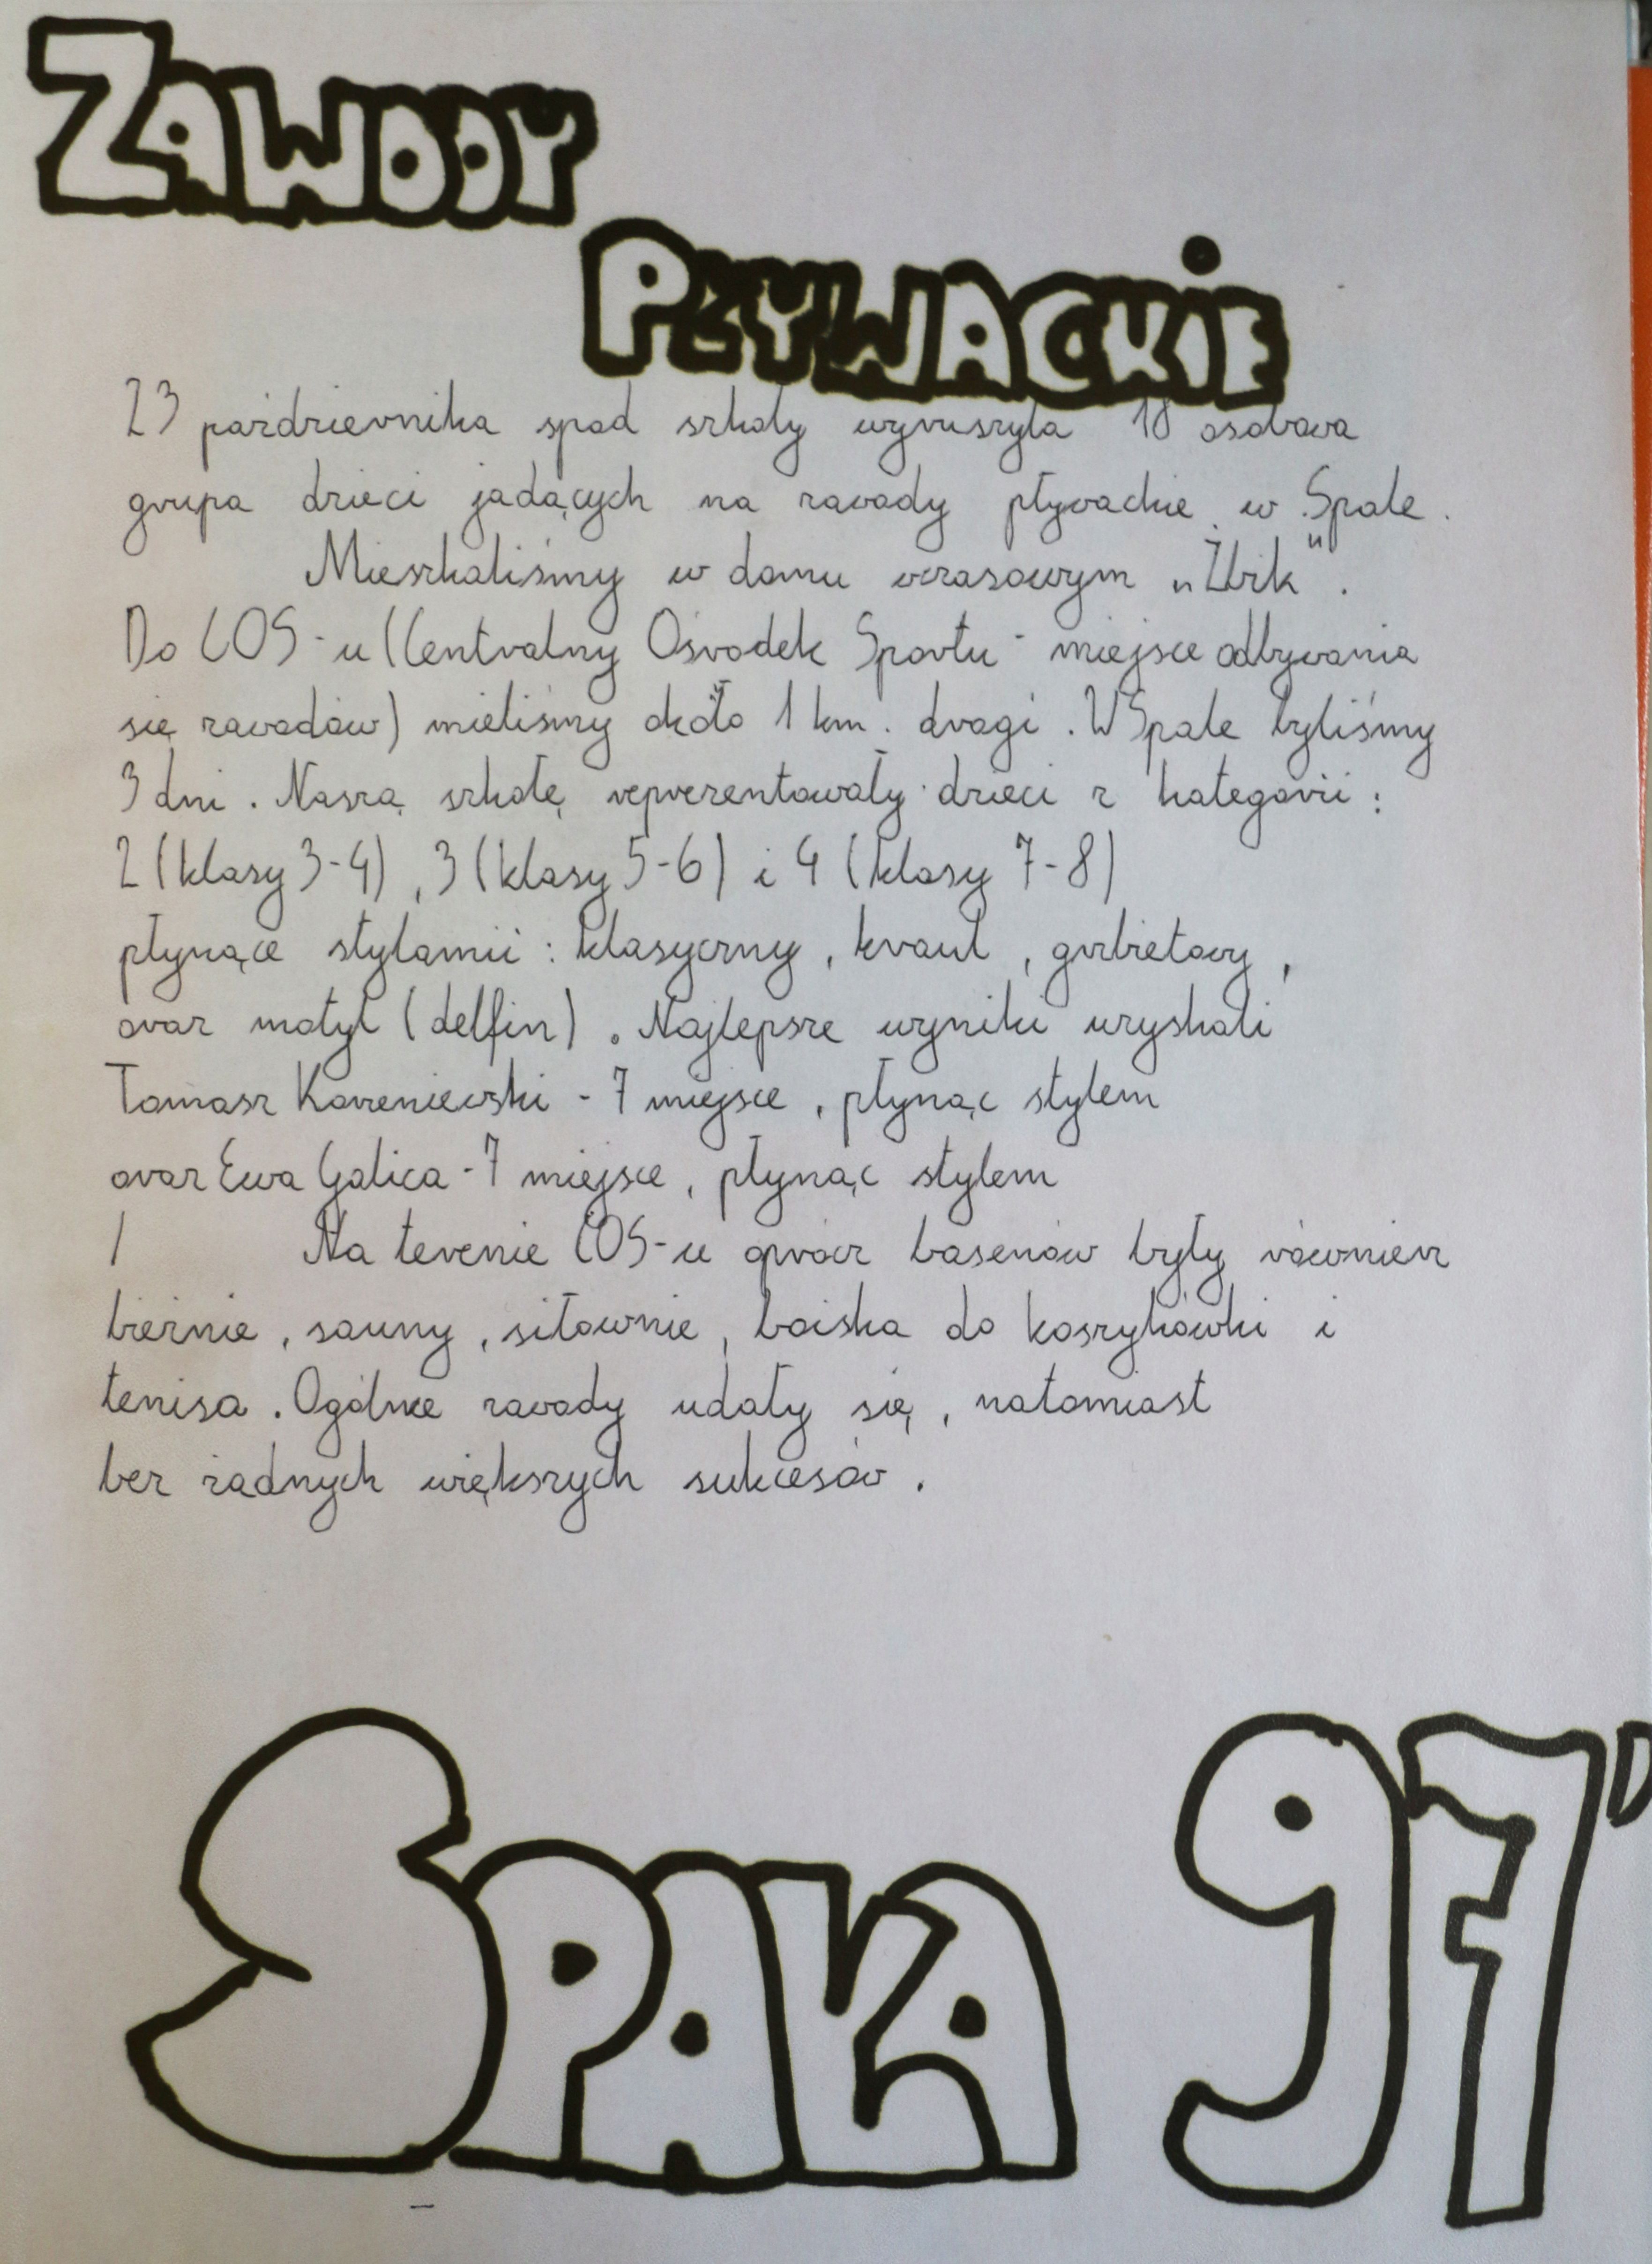 ZAWODY
PŁYWACKIE
23 października spod szkoły wyruszyła 18 osobowa
grupa dzieci jadących na zawody pływackie w Spale.
Mieszkaliśmy w domu wczasowym „Żbik".
Do COS-u (Centralny Ośrodek Sportu - miejsce odbywania
się zawodów) mieliśmy około 1 km. drogi. W Spale byliśmy
3 dni. Naszą szkołę reprezentowały dzieci z kategorii:
2 (klasy 3-4), 3 (klasy 5-6) i 4 (klasy 7-8)
płynące stylamii: klasyczny, kraul, grzbietowy,
oraz motyl (delfin). Najlepsze wyniki uzyskali
Tomasz Korzeniewski - 7 miejsce, płynąc stylem
oraz Ewa Galica - 7 miejsce, płynąc stylem
/ Na terenie COS-u oprócz basenów były również
bieżnie, sauny, siłownie, boiska do koszykówki i
tenisa. Ogólnie zawody udały się, natomiast
bez żadnych większych sukcesów.
SPAŁA 97'